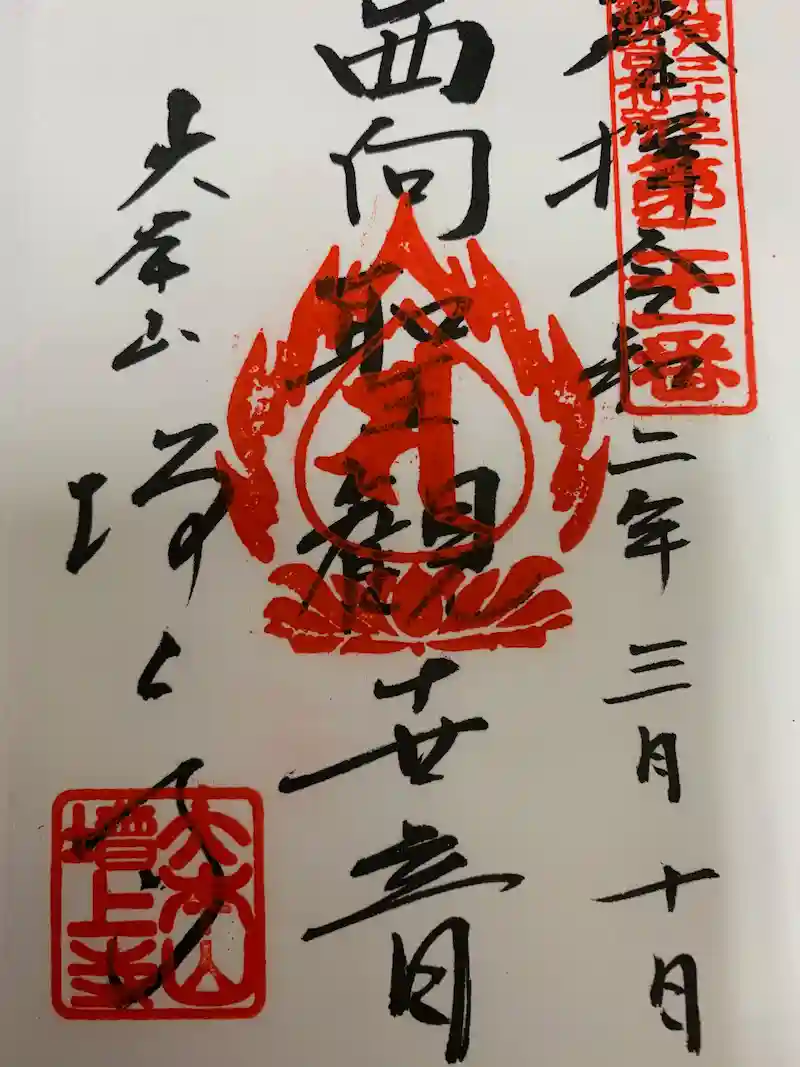 江戸三十三
観音札所
第二十一番
奉拝 令和二年三月十日
西向聖観世音
大本山 増上寺
大本山
増上寺